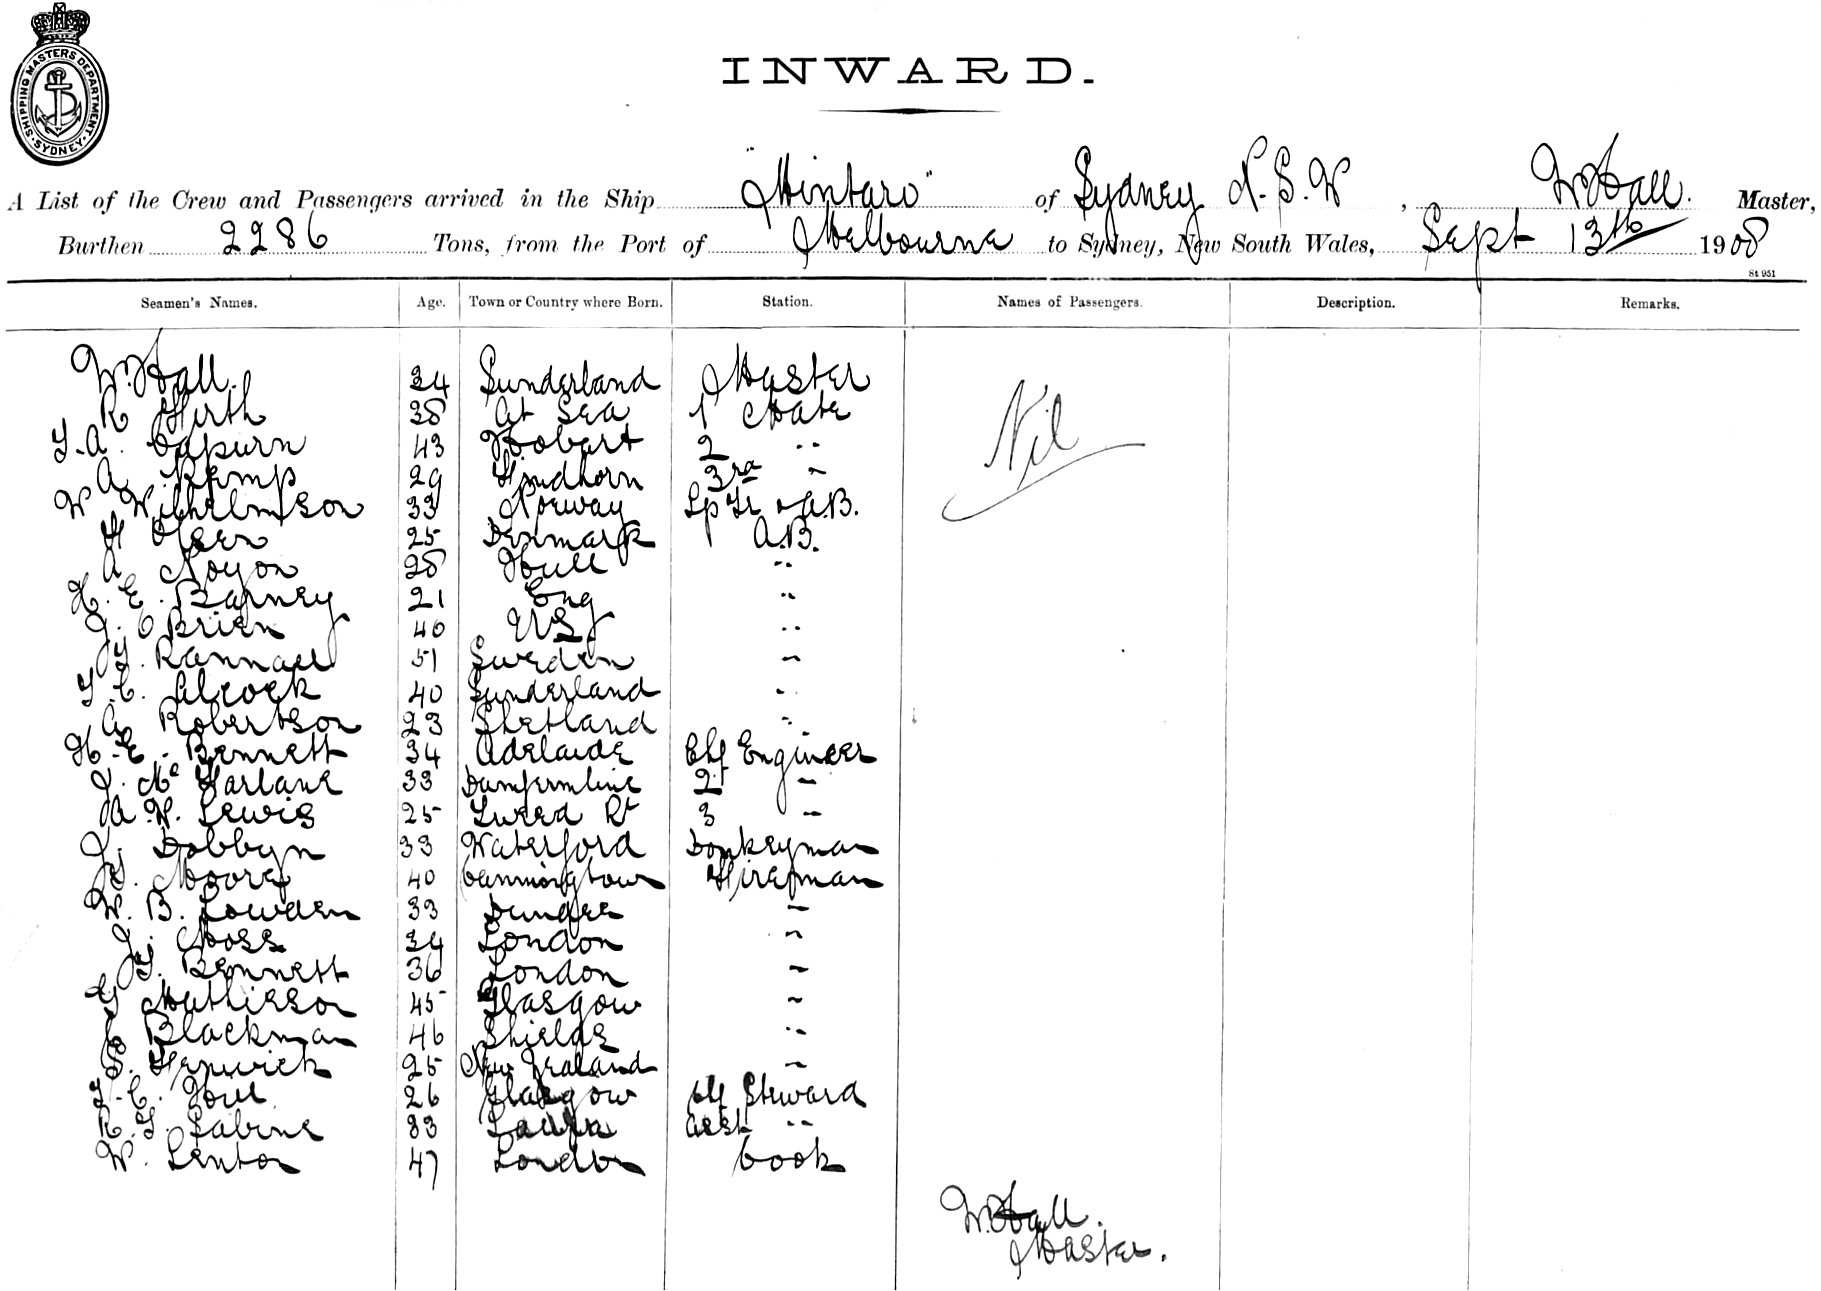 SHIPPING MASTERS DEPARTMENT
SYDNEY
INWARD.
A List of the Crew and Passengers arrived in the Ship "Mintaro" of Sydney N.S.W, W Hall. Master,
Burthen 2286 Tons, from the Port of Melbourne to Sydney, New South Wales, Sept 13th 1908
St 951
Seamen's Names. Age. Town or Country where Born. Station. Names of Passengers. Description. Remarks.
W. Hall. 34 Sunderland Master
R Hirth 38 At Sea 1 Mate Nil
43 Hobart 2 "
A Kemp 29 Findhorn 3rd "
W Wilhelmson 33 Norway A.B.
H Olsen 25 Denmark A.B.
A Noyon 28 Hull "
H. E. Barney 21 Eng "
J. C Brien 40 "
51 Sweden "
C. Alcock 40 Sunderland "
A Robertson 23 Shetland "
H. E. Bennett 34 Adelaide Chf Engineer
J. Mc Farlane 33 Dumfermline 2 "
A. W. Lewis 25 Tweed Rr 3 "
J. Dobbyn 33 Waterford Donkeyman
J. Moore 40 Canningtown Fireman
W. B. Lowden 33 Dundee "
J. Moss 34 London "
J. Bennett 36 London "
G Mathieson 45 Glasgow "
C Blackman 46 Shields "
S. Fenwick 25 New Zealand "
T. C. 26 Glasgow Chf Steward
R. G. Sabine 33 asst "
W. Lenton 47 London Cook
W. Hall.
Master.